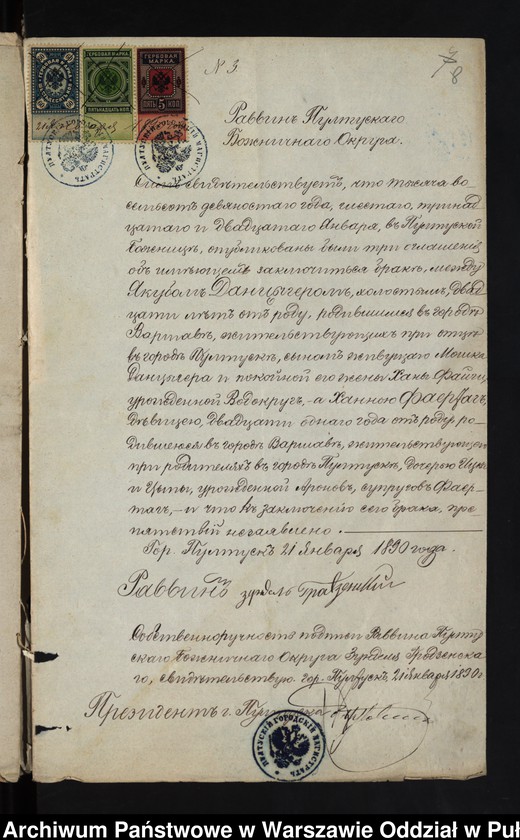 ГЕРБОВАЯ МАРКА
ГЕРБОВАЯ МАРКА
ПЯТЬ 5 КОП
ПЯТЬНАДЦАТЬ КОП
N 3.
8
Раввинъ Пултускаго
Божничнаго Округа.
Симъ свидѣтельствуетъ, что тысяча во-
семьсотъ девяностаго года, шестаго, тринад-
цатаго и двадцатаго Января, въ Пултуской
Божницѣ, опубликованы были три оглашенія
объ имѣющемъ заключиться бракѣ, между
Якубомъ Данцыгеромъ, холостымъ, двад-
цати лѣтъ отъ роду, родившимся въ городѣ
Варшавѣ, жительствующихъ при отцѣ
въ городѣ Пултускѣ, сыномъ живущаго Мошка
Данцыгера и покойной его жены Ханы Файги,
урожденной Водокругъ, - а Ханною Фаертагъ,
дѣвицею, двадцати однаго года отъ роду, ро-
дившеюся въ городѣ Варшавѣ, жительствующею
при родителяхъ въ городѣ Пултускѣ, дочерью Ицка
и Цыпы, урожденной Ароновъ, супруговъ Фаер-
тагъ, - и что къ заключенію сего брака, пре-
пятствій незаявлено.
Гор. Пултускъ 21 Января 1890 года.
Раввинъ
Собственноручность подписи Раввина Пулту-
скаго Божничнаго Округа Зурделя Гродзенска-
го, свидѣтельствую. гор. Пултускъ, 21 января 1890 г.
Президентъ г. Пултуска
ПУЛТУСКІЙ ГОРОДСКІЙ МАГИСТРАТЪ
Archiwum Państwowe w Warszawie Oddział w Puł